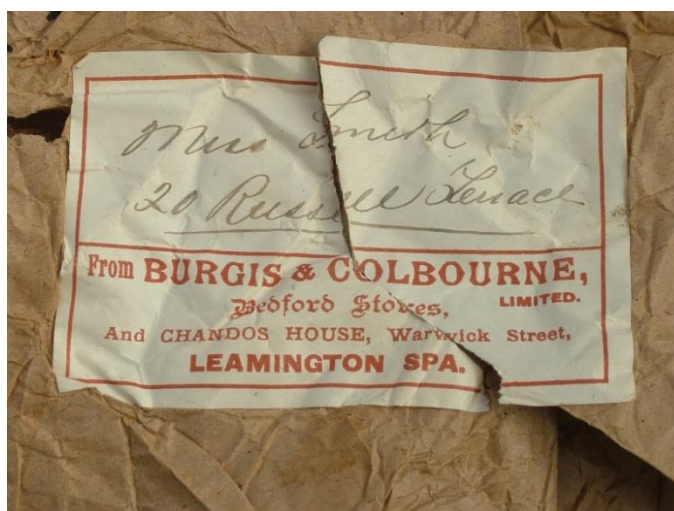 Miss Smith
20 Russell Terrace
From BURGIS & COLBOURNE,
LIMITED.
Bedford Stores,
And CHANDOS HOUSE, Warwick Street,
LEAMINGTON SPA.